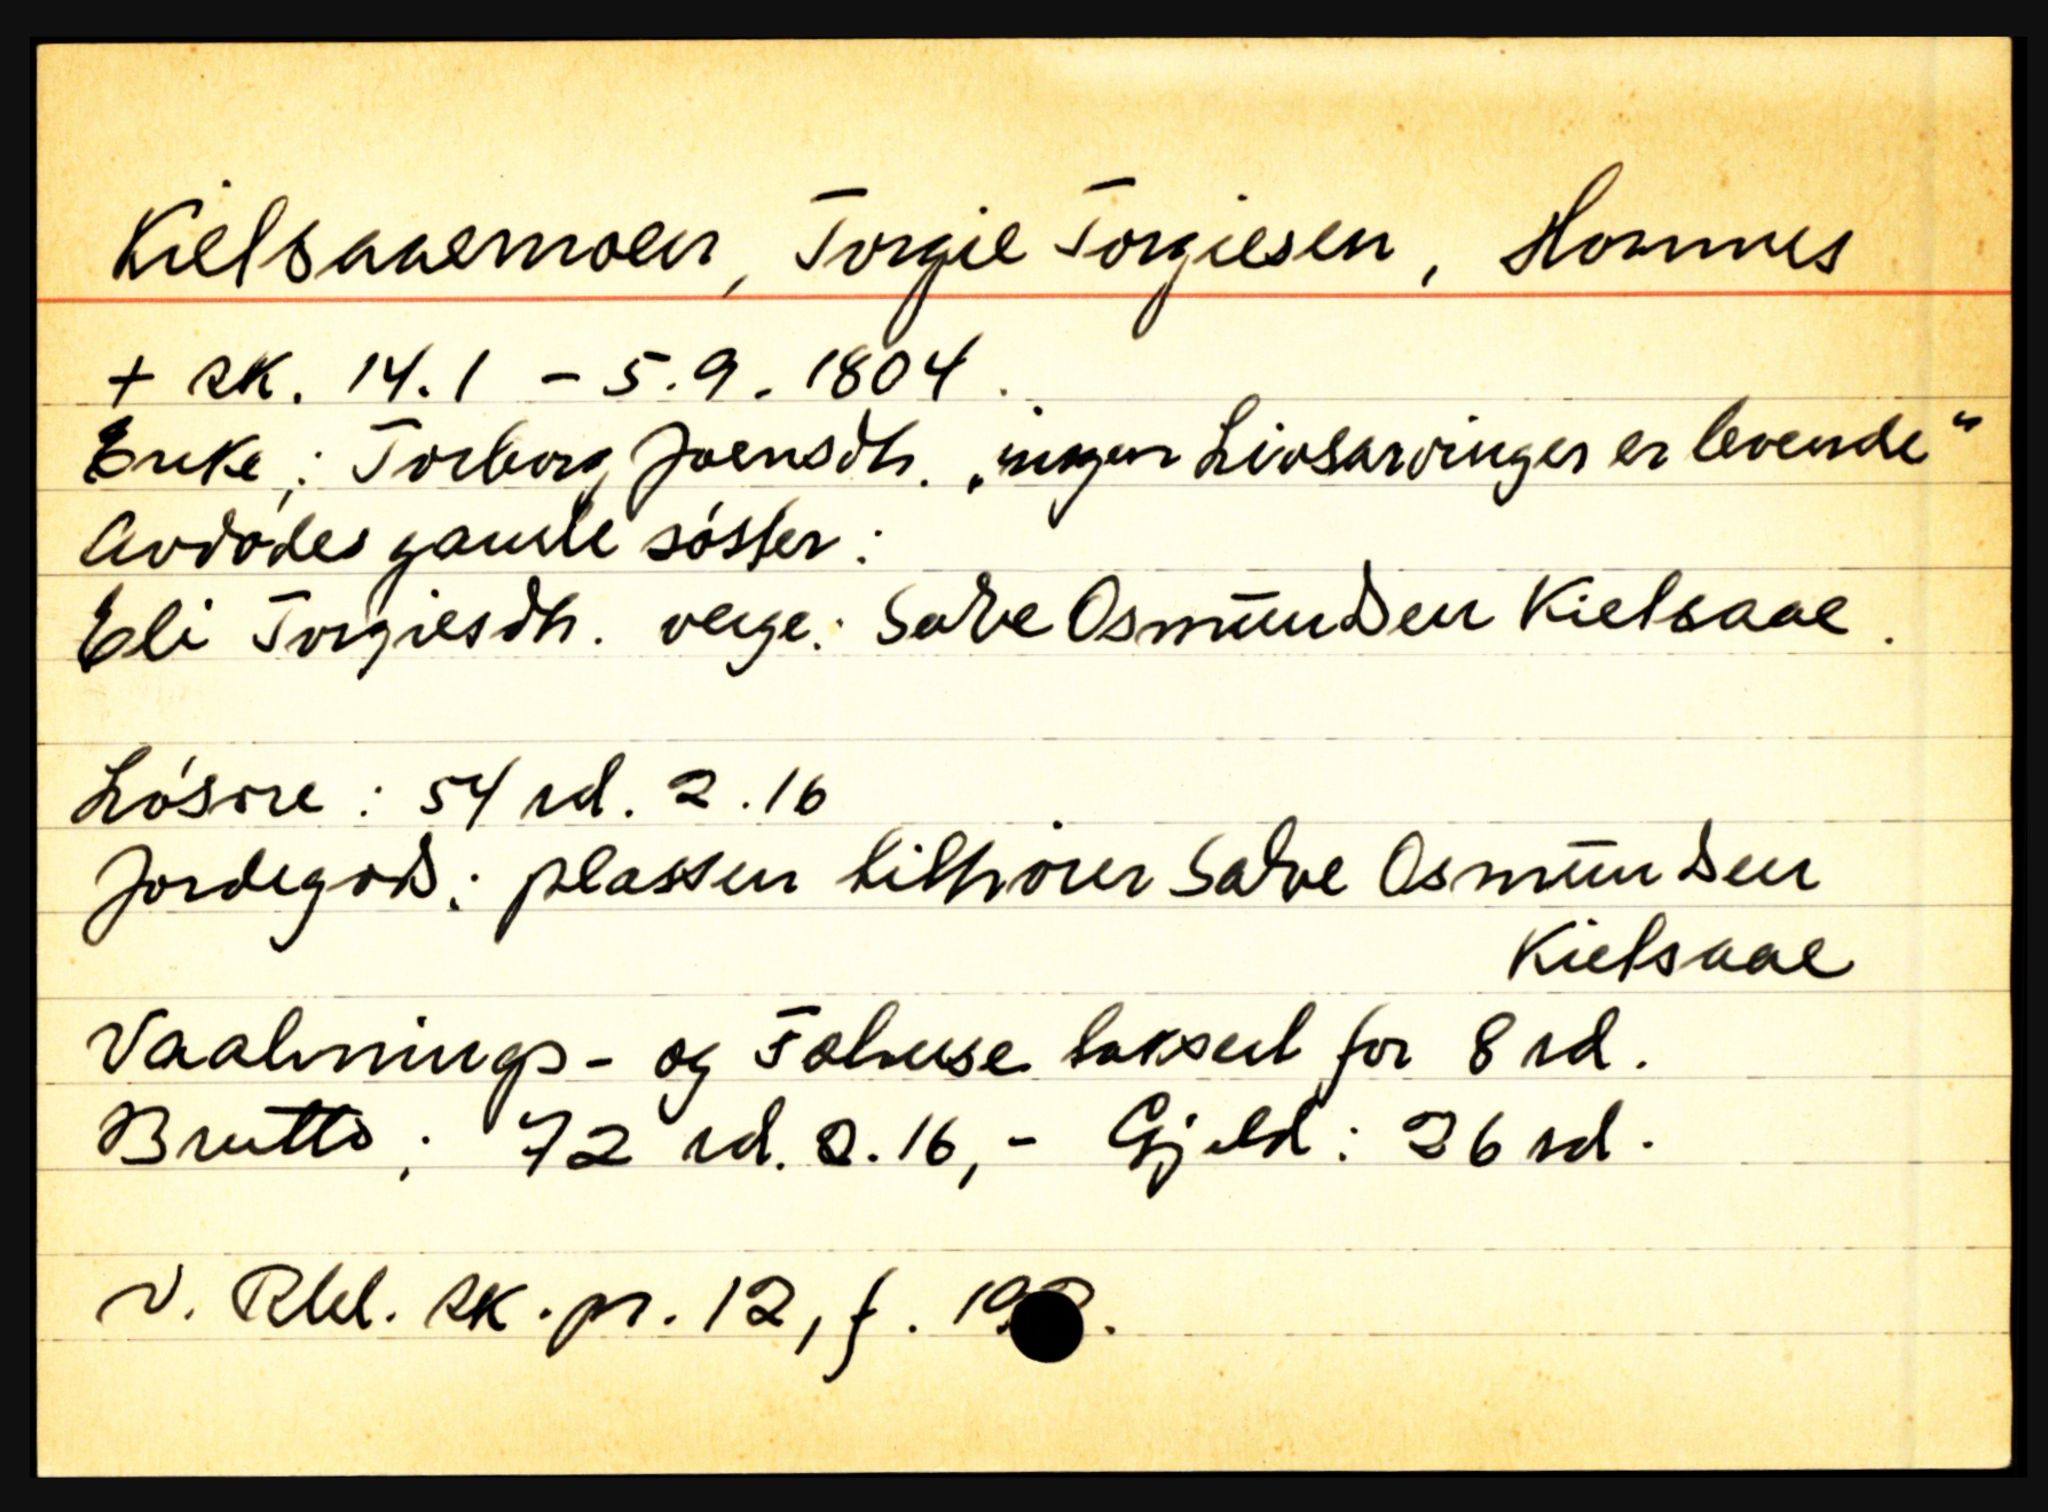 Kielsaaemoen, Torgie Torgiesen, Hornnes
+ sk. 14.1 - 5.9. 1804.
Enke: Torborg Joensdtr. „ingen Livsarvinger er levende“
Avdødes gamle søster:
Eli Torgiesdtr. verge: Salve Osmundsen Kielsaae.
Løsøre: 54 rd. 2.16
Jordegods: plassen tilhører Salve Osmundsen
Kielsaae
Vaalnings- og Fæhuse taksert for 8 rd.
Brutto: 72 rd. 2.16,- Gjeld: 26 rd.
V. Rbl. sk. pr. 12, f.